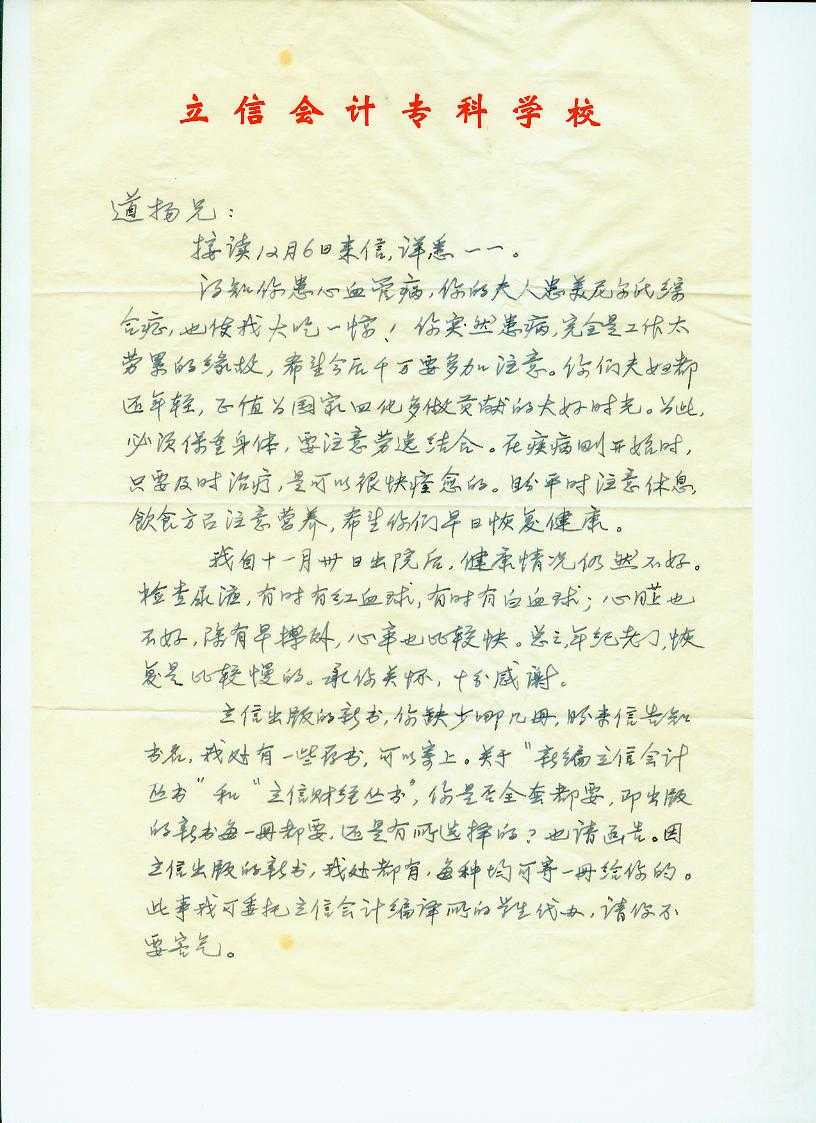 立信会计专科学校
道扬兄：
接读12月6日来信，详悉一一。
得知你患心血管病，你的夫人患美尼尔氏综
合症，也使我大吃一惊！你突然患病，完全是工作太
劳累的缘故，希望今后千万要多加注意。你们夫妇都
还年轻，正值为国家四化多做贡献的大好时光。为此，
必须保重身体，要注意劳逸结合。在疾病刚开始时，
只要及时治疗，是可以很快痊愈的。盼平时注意休息，
飲食方面注意营养，希望你们早日恢复健康。
我自十一月卅日出院后，健康情况仍然不好。
检查尿液，有时有红血球，有时有白血球；心脏也
不好，除有早搏外，心率也比较快。总之，年纪老了，恢
复是比较慢的。承你关怀，十分感谢。
立信出版的新书，你缺少哪几册，盼来信告知
书名，我处有一些存书，可以寄上。关于“新编立信会计
丛书”和“立信财经丛书”，你是否全套都要，即出版
的新书每一册都要，还是有所选择的？也请函告。因
立信出版的新书，我处都有，每种均可寄一册给你的。
此事我可委托立信会计编译所的学生代办，请你不
要客气。